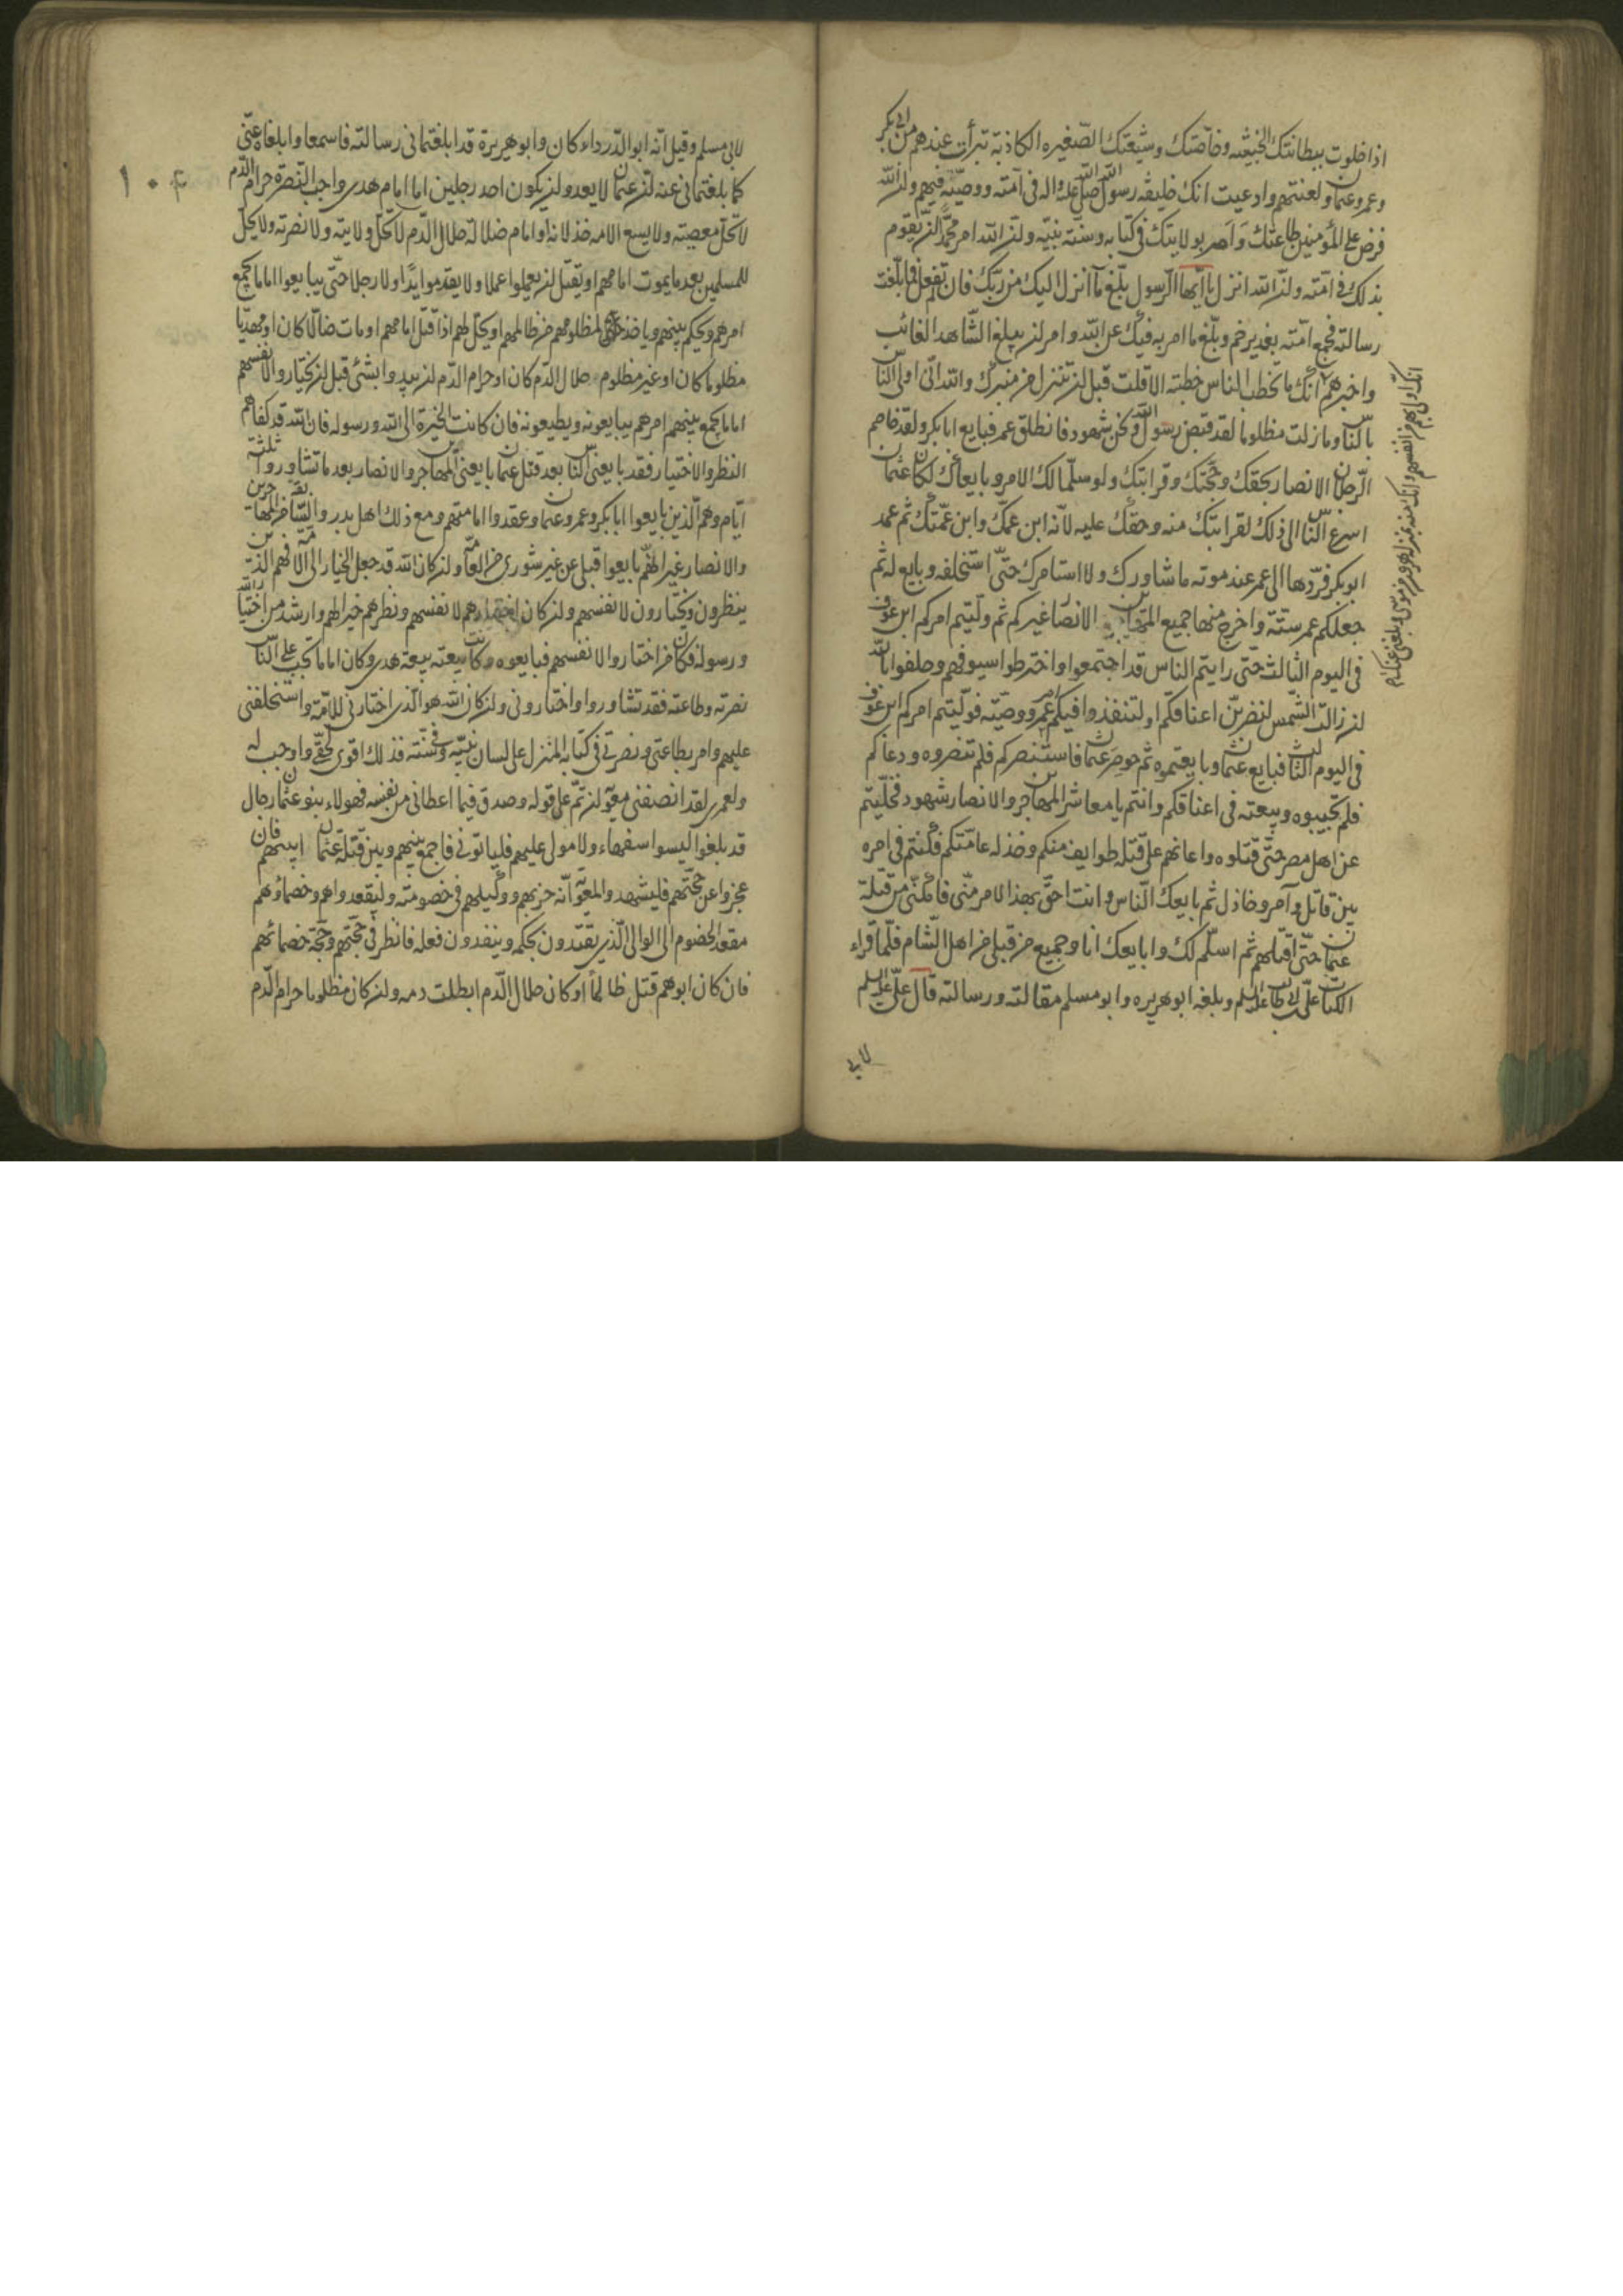 اذا خلوت ببطانتك الخبيثه وخاصّتك وشيعتك الصّغيره الكاذبة تبرأت عندهم من ابى بكر
وعمر وعثمان ولعنتهم وادعيت انك خليفه رسول الله صلى الله عليه واله فى امّته ووصيّه فيهم ولن الله
فرض على المؤمنين طاعتك وَاَمر بولايتك فى كتابه وسنّة نبيّه ولن الله امر محمّدا لن يقوم
بذلك فى امّته ولن الله انزل يا ايّها الرسول بلّغ ما انزل اليك من ربّك فان لم تفعل فما بلّغت
رسالته فجمع امّته بغدير خم وبلّغ ما امر به فيك عن الله وامر لن يبلغ الشّاهد الغائب
واخبرهم انّك ما تخطب الناس خطبة الا قلت قبل لن تنزل من منبرك والله انّى اولى النّاس
بالنّاس وما زلت مظلوما لقد قبض رسول الله ونحن شهود فانطلق عمر فبايع ابابكر ولقد خاصم
الرّجلان الانصار بحقك وحجّتك وقرابتك ولو سلّما لك الامر وبايعاك لكان عثمان
اسرع النّاس الى ذلك لقرابتك منه وحقك عليه لانّه ابن عمّك وابن عمّتك ثم عمد
ابوبكر فردّها الى عمر عند موته ما شاورك ولا استامرك حتّى استخلفه وبايع له ثم
جعلكم عمر ستّة واخرج منها جميع المهاجرين الانصار غيركم ثم ولّيتم امركم ابن عوف
فى اليوم الثالث حتى رايتم الناس قد اجتمعوا واخترطوا سيوفهم وحلفوا بالله
لن زالت الشّمس لنضربّن اعناقكم او لتنفذوا فيكم امر عمر ووصيّته فولّيتم امركم ابن عوف
فى اليوم الثالث فبايع عثمان وبايعتموه ثم حوصر عثمان فاستنصركم فلم تنصروه ودعاكم
فلم تجيبوه وبيعته فى اعناقكم وانتم يا معاشر المهاجرين والانصار شهود فخلّيتم
عن اهل مصر حتّى قتلوه واعانهم على قتله طوايف منكم وخذله عامّتكم فكنتم فى امره
بين قاتل وآمر وخاذل ثم بايعك النّاس وانت احقّ بهذا الامر منّى فامكنّى من قتلة
عثمان حتّى اقتلهم ثم اسلّم لك وابايعك انا وجميع من قبلى من اهل الشّام فلمّا قراء
الكتاب علىّ بن ابى طالب عليه السلم وبلغه ابو هريره وابو مسلم مقالته ورسالته قال علىّ عليه السلم
لابى
انّك اولى بهم من انفسهم وانك منه بمنزله هرون من موسى وبلغنى عنك
١٠٤
لابى مسلم وقيل انّه ابو الدّرداء كان وابو هريرة قد ابلغتمانى رسالته فاسمعا وابلغاه عنّى
كما بلغتمانى عنه لن عثمان لا يعدو لن يكون احد رجلين اما امام هدى واجب النصرة حرام الدّم
لا تحلّ معصيته ولا يسع الامه خذلانه او امام ضلالة حلال الدّم لا تحلّ ولايته ولا نصرته ولا يحلّ
للمسلمين بعد ما يموت امامهم او يقتل لن يعملوا عملا ولا يقدموا يدًا ولا رجلا حتّى يبايعوا اماما يجمع
امرهم ويحكم بينهم وياخذ لمظلومهم من ظالمهم او يحلّ لهم اذا قتل امامهم او مات ضالّا كان او مهديّا
مظلوما كان او غير مظلوم حلال الدّم كان او حرام الدّم لن يبدوا بشئ قبل لن يختاروا لانفسهم
اماما يجمع بينهم امرهم يبايعونه ويطيعونه فان كانت الخيرة الى الله ورسوله فان الله قد كفاهم
النظر والاختيار فقد بايعنى النّاس بعد قتل عثمان بايعنى المهاجرين والانصار بعد ما تشاوروا ثلثة
ايّام وهم الّذين بايعوا ابا بكر وعمر وعثمان وعقدوا امامتهم ومع ذلك اهل بدر والسّابقة من المهاجرين
والانصار غير انّهم بايعوا قبلى عن غير شورى من العامّة ولن كان الله قد جعل الخيار الى الامّة فهم الذين
ينظرون ويختارون لانفسهم ولن كان اختيارهم لانفسهم ونظرهم خير لهم وارشد من اختيار الله
ورسوله فكان من اختاروا لانفسهم فبايعوه وكانت بيعته بيعة هدى وكان اماما تجب على النّاس
نصرته وطاعته فقد تشاوروا واختارونى ولن كان الله هو الّذى اختارنى للامّة واستخلفنى
عليهم وامر بطاعتى ونصرتى فى كتابه المنزل على لسان نبيّه وفى سنّته فذلك اقوى لحقّى واوجب له
ولعمرى لقد انصفنى معوية لن تمّ على قوله وصدق فيما اعطانى من نفسه فهولاء بنو عثمان رجال
قد بلغوا ليسوا سفهاء ولا مولى عليهم فلياتونى فاجمع بينهم وبين قتلة عثمان ابيهم فان
عجزوا عن حجّتهم فليشهد والمعوية انّه حزبهم ووكيلهم فى خصومته وليقعدوا هم وخصماؤهم
مقعد الخضوم الى الوالى الّذى يقتدون بحكمه وينفدون فعله فانظر فى حجّتهم وحجّة خصمائهم
فان كان ابوهم قتل ظالمًا او كان حلال الدّم ابطلت دمه ولن كان مظلوما حرام الدّم